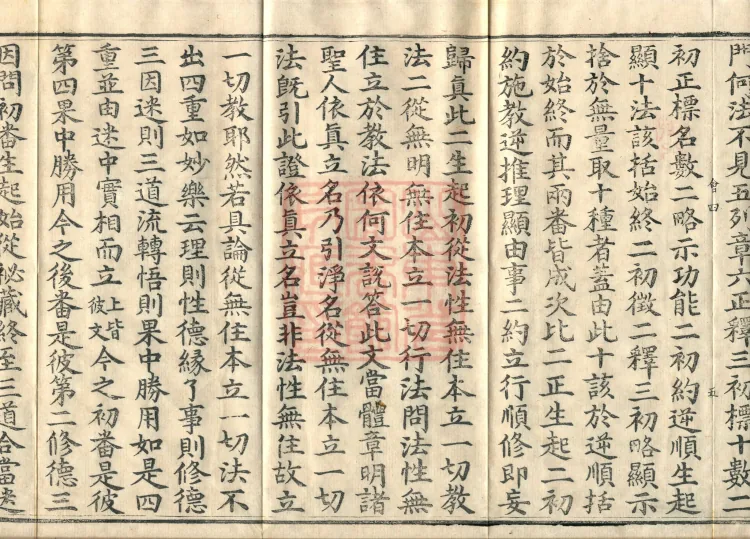 門何法不見五列章六正釋三初標十數二
初正標名數二略示功能二初約逆順生起
顯十法該括始終二初徵二釋三初略顯示
捨於無量取十種者蓋由此十該於逆順括
於始終而其兩番皆成次比二正生起二初
約施教逆推理顯由事二約立行順修即妄
歸真此二生起初從法性無住本立一切教
法二從無明無住本立一切行法問法性無
住立於教法依何文說答此文當體章明諸
聖人依真立名乃引淨名從無住本立一切
法既引此證依真立名豈非法性無住故立
一切教耶然若具論從無住本立一切法不
出四重如妙樂云理則性德緣了事則修德
三因迷則三道流轉悟則果中勝用如是四
重並由迷中實相而立上皆彼文今之初番是彼
第四果中勝用今之後番是彼第二修德三
因問初番生起始從祕藏終至三道合當迷
會四
五